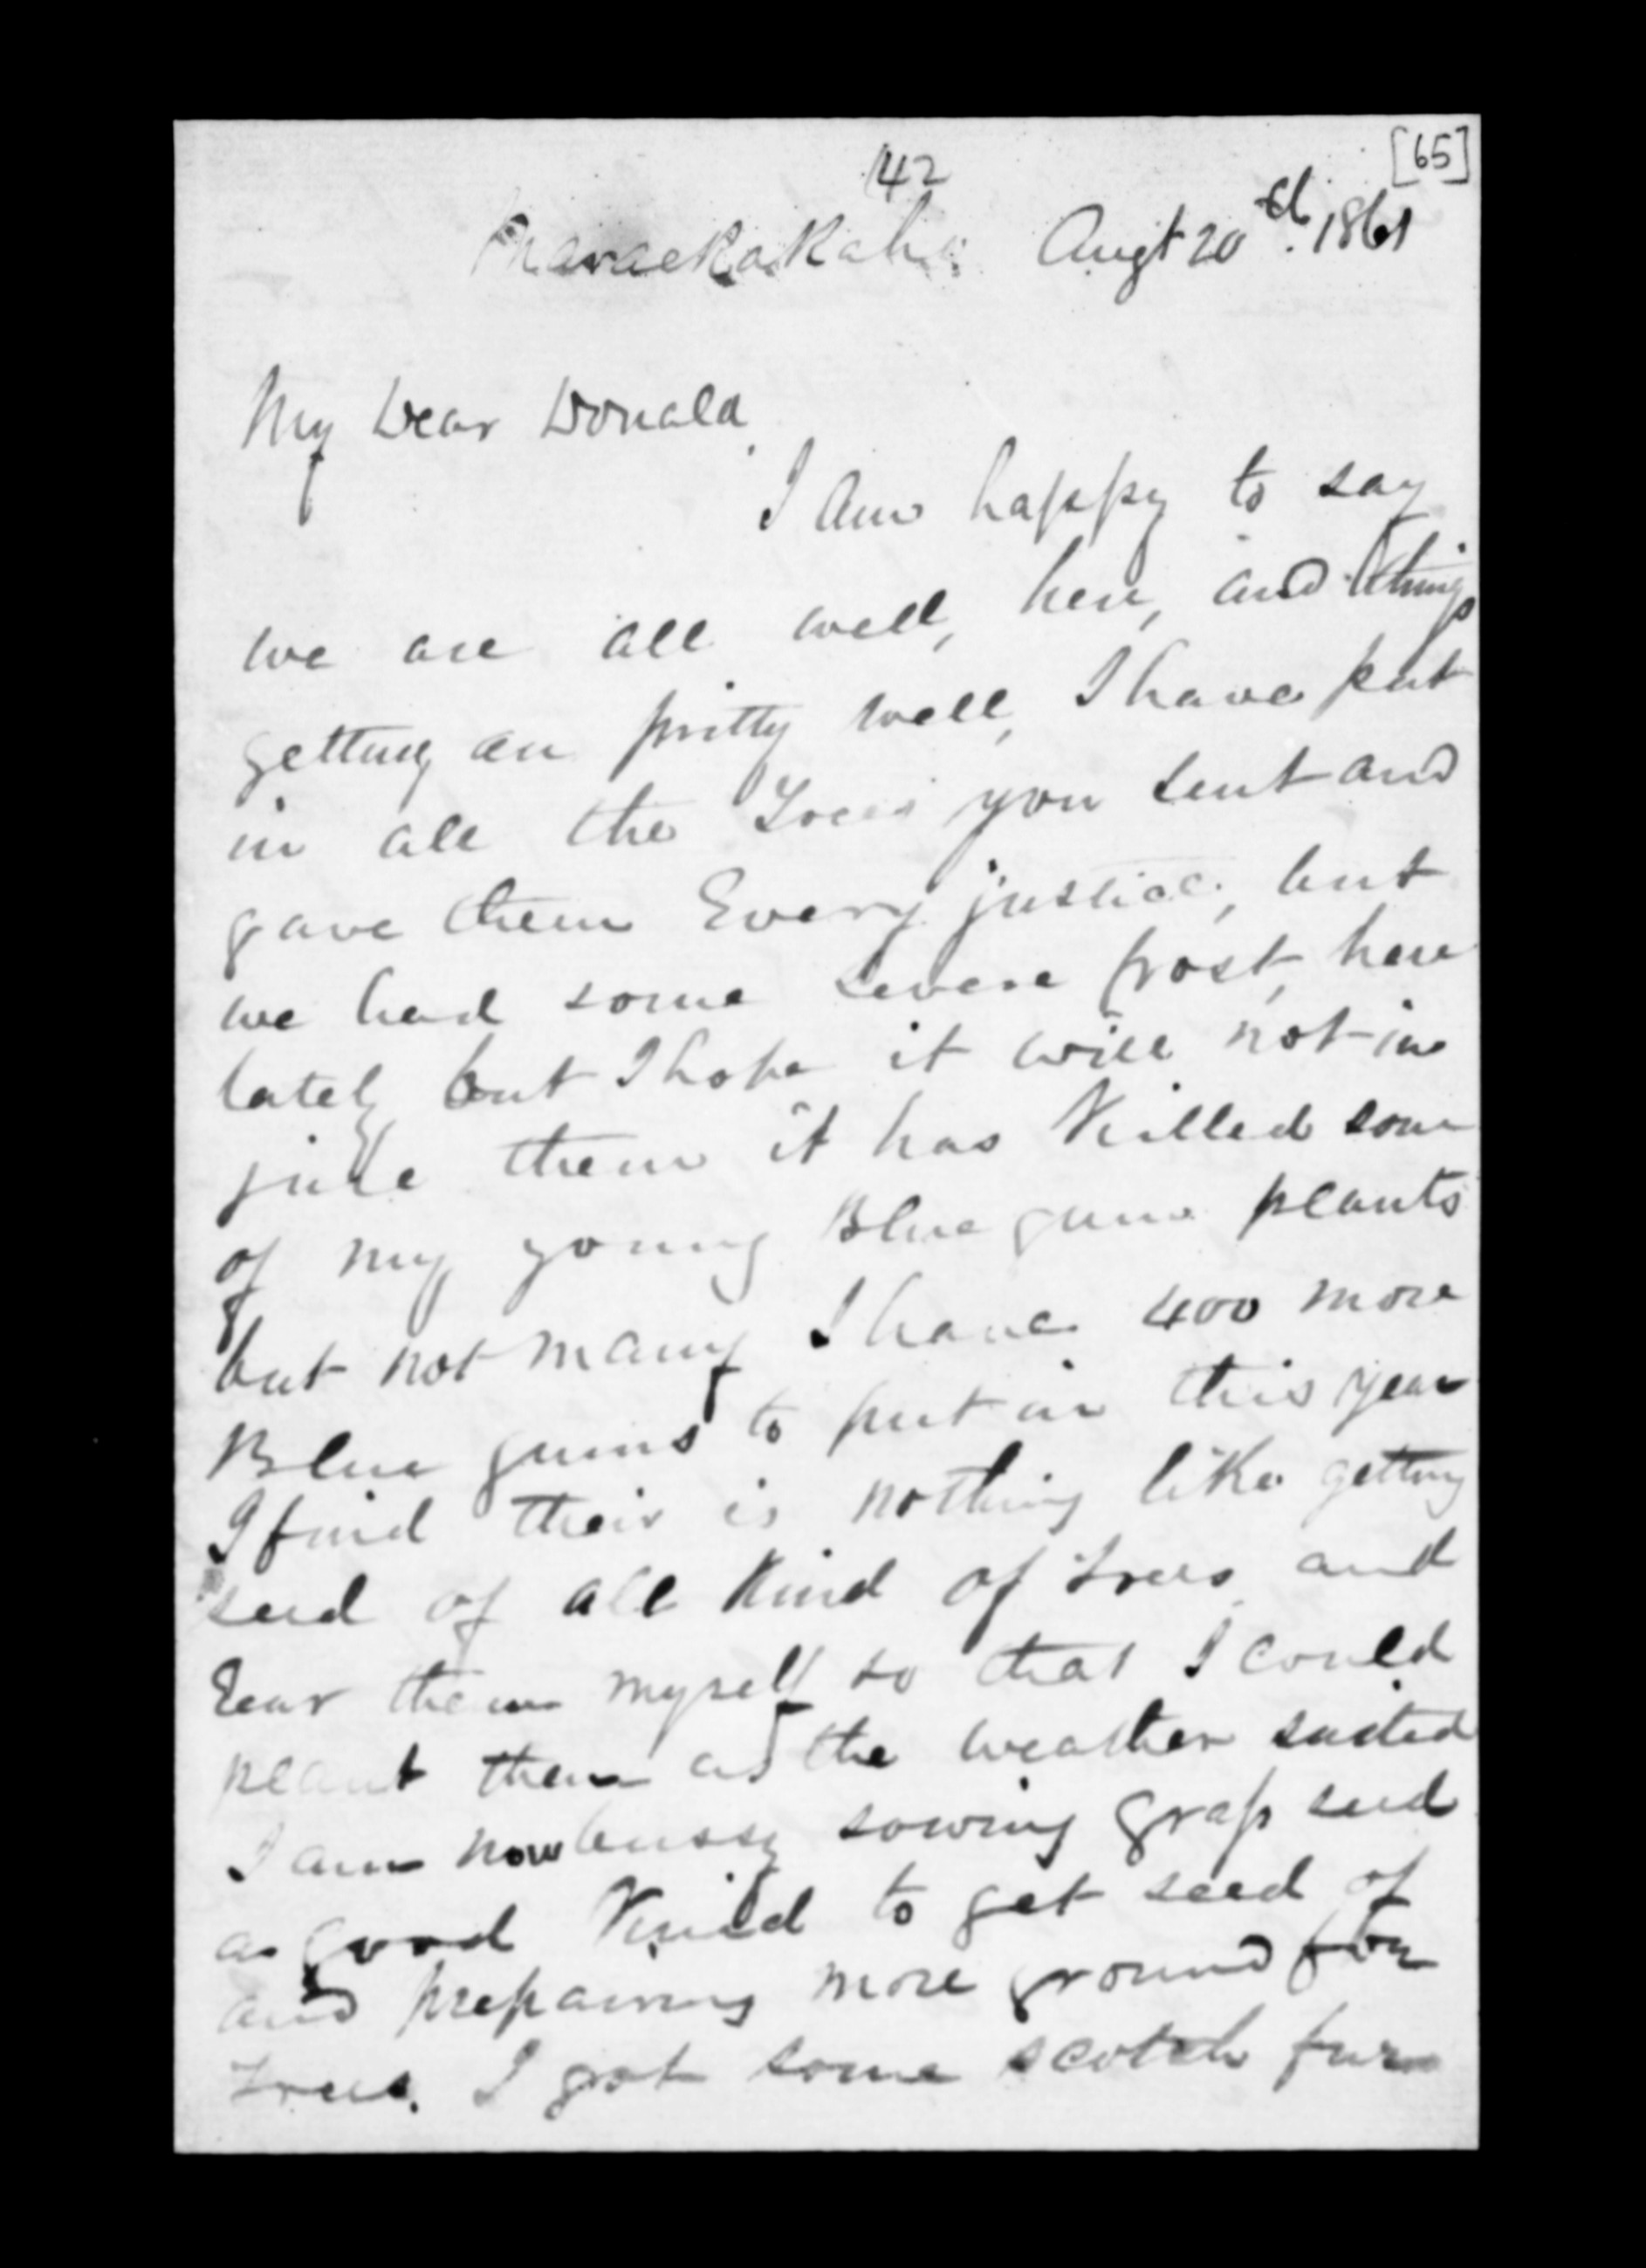 [65]
142
Maraekakaho Augt 20th. 1861
My Dear Donald
I am happy to say
we are all well, here, and things
getting an pritty well, I have put
in all the Trees you sent and
gave them Every justice, but
we had some severe frost, here
lately but I hope it will not in
jure them it has Killed some
of my young Blue gum plants
but not many I have 400 more
Blue gums to put in this year
I find their is nothing like getting
seed of all Kind of trees and
rear them myself so that I could
plant them as the weather suited
I am now bussy sowing grass seed
a good Kind to get seed of
and prepairing more ground for
trees. I got some scotch furs